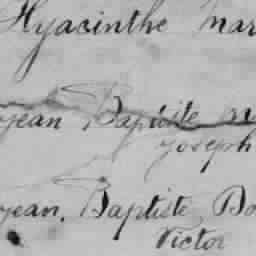 Hyacinthe Mar
Jean Baptiste
Joseph
Jean, Baptiste Do
Victor